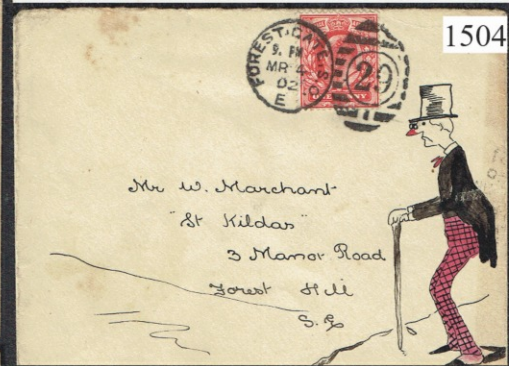 1504
FOREST GATE S.O.
9. PM
MR 4
02
E
29
Mr W. Marchant
"St Kildas"
3 Manor Road
Forest Hill
S.E